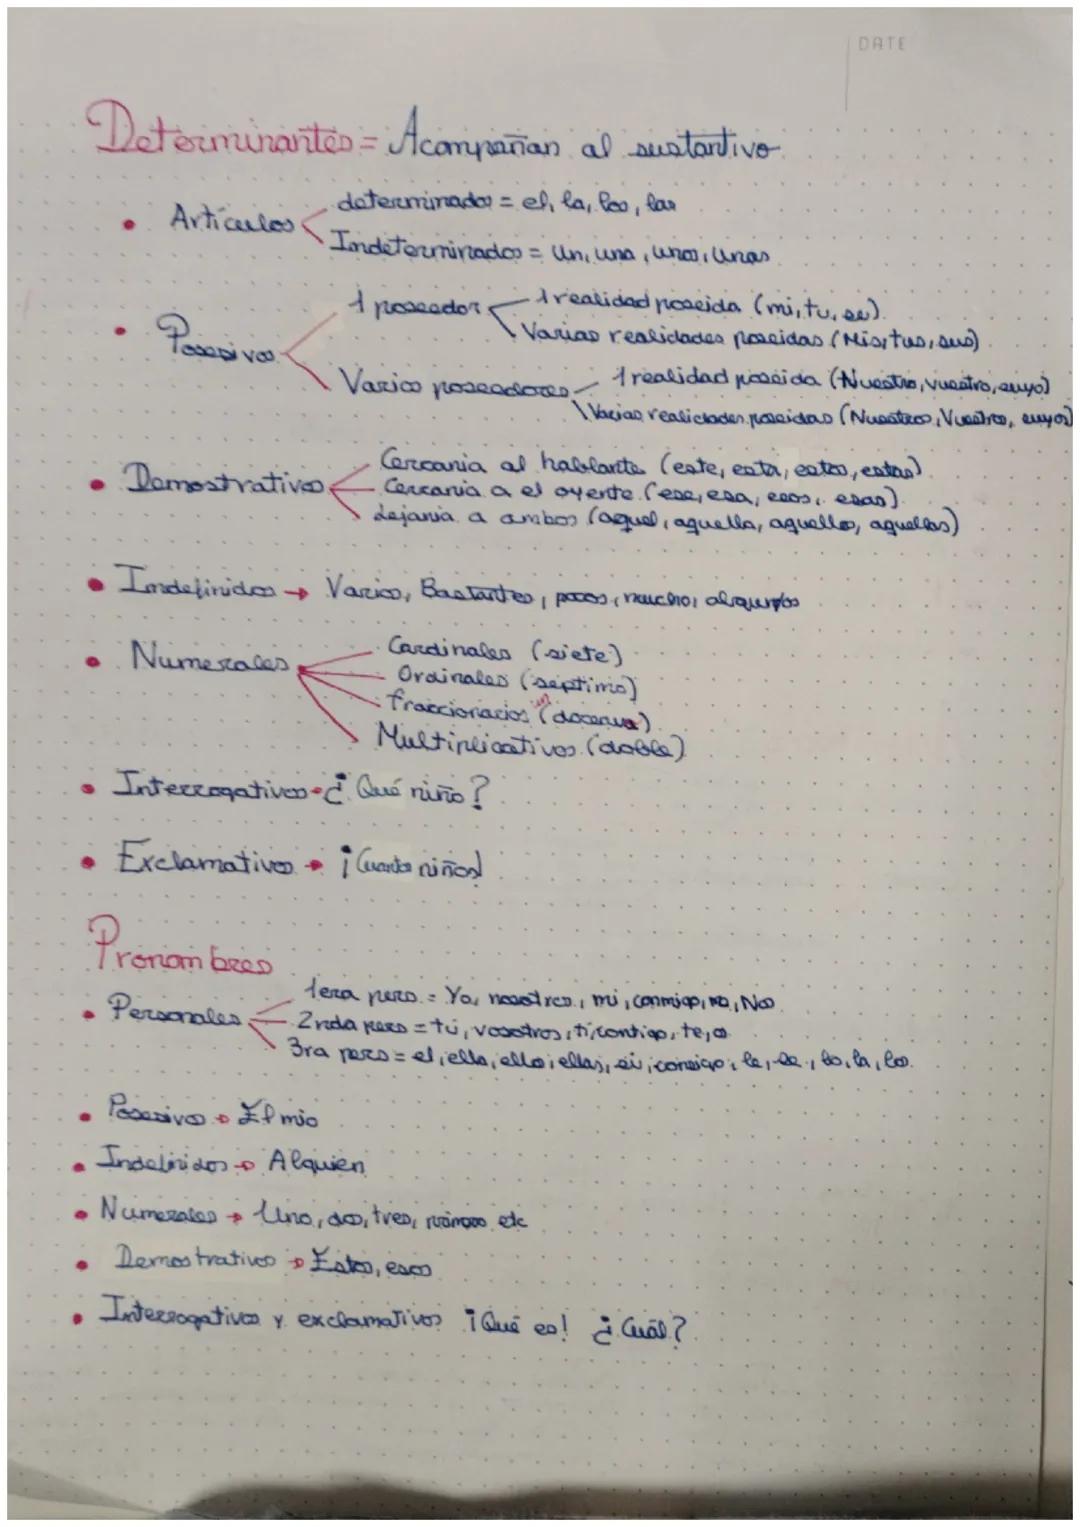 DATE
Determinantes = Acompañan al sustantivo
• Artículos
determinados = el, la, los, las
Indeterminados = Un, una, unos, Unas
• Posesivos
1 poseedor
1 realidad poseida (mi, tu, su)
Varias realidades poseidas (Mis, tus, sus)
Varios poseedores
1 realidad poseida (Nuestro, vuestro, suyo)
Varias realidades poseidas (Nuestros, Vuestros, suyos)
• Demostrativos
Cercania al hablante (este, esta, estos, estas)
Cercania a el oyente (ese, esa, esos, esas)
Lejania a ambos (aquel, aquella, aquellos, aquellas)
• Indefinidos → Varios, Bastantes, pocos, mucho, algunos
• Numerales
Cardinales (siete)
Ordinales (septimo)
fraccionarios (docena)
Multiplicativos (doble)
• Interrogativos → ¿Qué niño?
• Exclamativos → ¡Cuantos niños!
Pronombres
• Personales
1era pers. = Yo, nosotros, mi, conmigo, me, Nos
2nda pers = tú, vosotros, ti, contigo, te, os
3ra pers = el, ella, ellos, ellas, si, consigo, le, se, lo, la, los
• Posesivos → El mio
• Indefinidos → Alguien
• Numerales → Uno, dos, tres, etc
• Demostrativos → Estos, esos
• Interrogativos y exclamativos ¡Qué es! ¿Cuál?